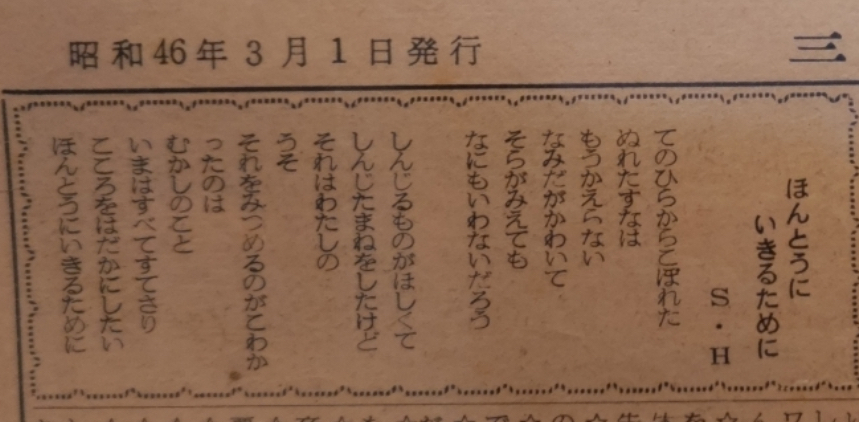 昭和46年3月1日発行
三
ほんとうに
いきるために
S・H
てのひらからこぼれた
ぬれたすなは
もうかえらない
なみだがかわいて
そらがみえても
なにもいわないだろう
しんじるものがほしくて
しんじたまねをしたけど
それはわたしの
うそ
それをみつめるのがこわか
ったのは
むかしのこと
いまはすべてすてさり
こころをはだかにしたい
ほんとうにいきるために